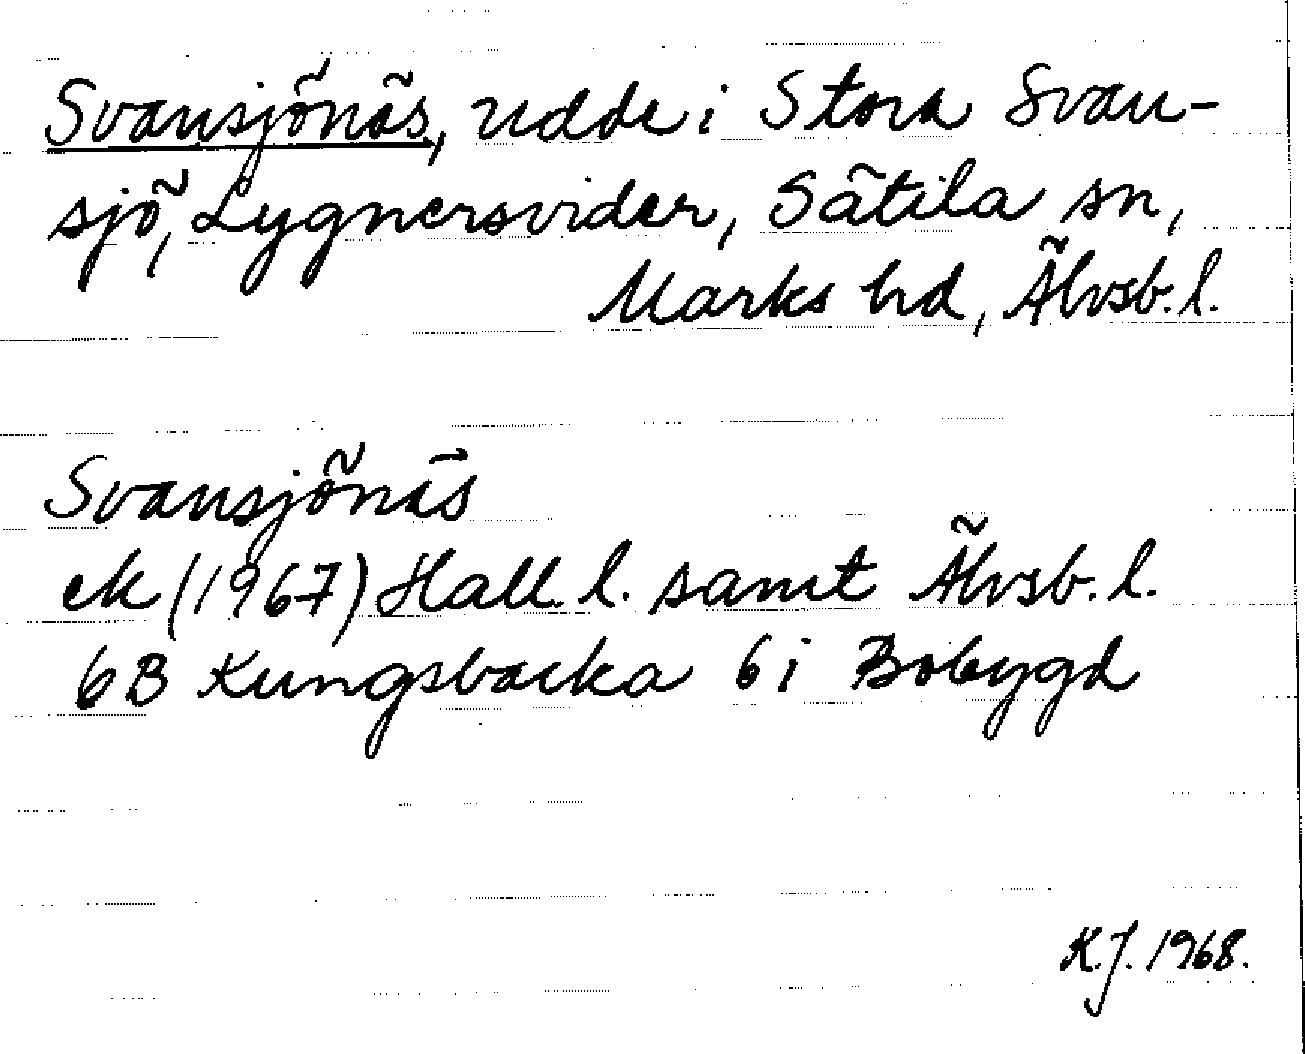 Svansjönäs, udde i Stora Svan-
sjö, Lygnersvider, Sätila sn,
Marks hd, Älvsb. l.
Svansjönäs
ek (1967) Hall. l. samt Älvsb. l.
6B Kungsbacka 6i Bobygd
K.J. 1968.